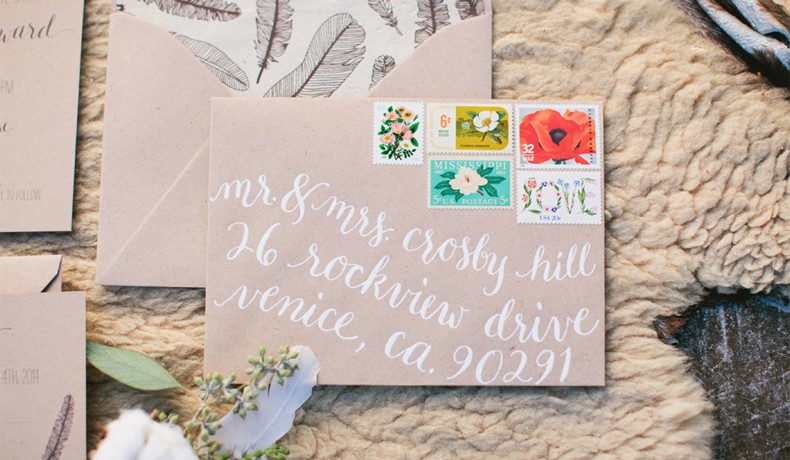 ward
PM
TO FOLLOW
4TH, 2014
6¢
32
USA
MISSISSIPPI
5¢ U.S. POSTAGE 5¢
LOVE
USA 20c
mr. & mrs. crosby hill
26 rockview drive
venice, ca. 90291